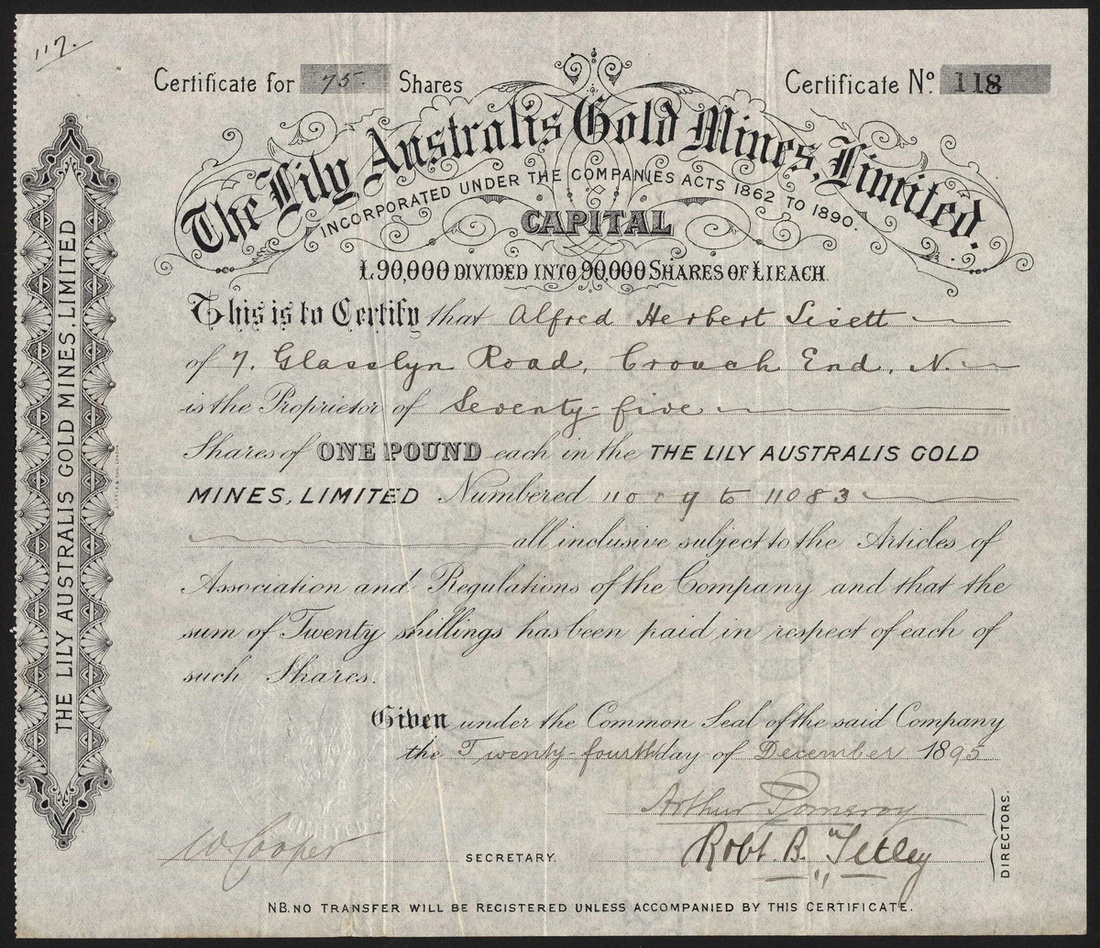 117.
Certificate for 75 Shares
Certificate No. 118
The Lily Australis Gold Mines, Limited.
INCORPORATED UNDER THE COMPANIES ACTS 1862 TO 1890.
CAPITAL
£90,000 DIVIDED INTO 90,000 SHARES OF £1 EACH.
This is to Certify that Alfred Herbert Lisett
of 7. Glasslyn Road, Crouch End, N.
is the Proprietor of Seventy-five
Shares of ONE POUND each in the THE LILY AUSTRALIS GOLD
MINES, LIMITED Numbered to 11083
all inclusive subject to the Articles of
Association and Regulations of the Company and that the
sum of Twenty shillings has been paid in respect of each of
such Shares.
Given under the Common Seal of the said Company
the Twenty-fourth day of December 1895
Arthur Pomeroy
Robt. B. Tetley
DIRECTORS.
W Cooper
SECRETARY.
NB. NO TRANSFER WILL BE REGISTERED UNLESS ACCOMPANIED BY THIS CERTIFICATE.
THE LILY AUSTRALIS GOLD MINES, LIMITED
LIMITED